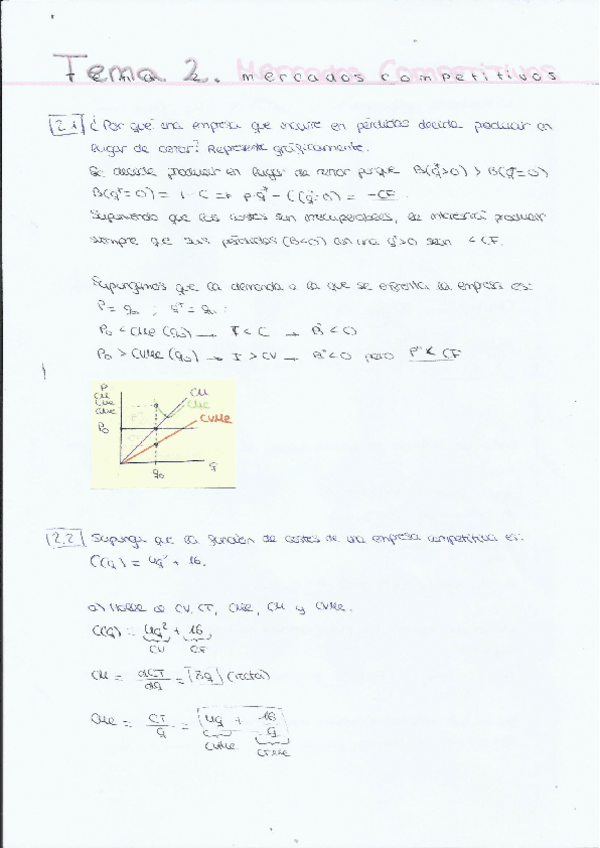 Tema 2. mercados competitivos
2.1 ¿Por qué una empresa que incurre en pérdidas decide producir en
lugar de cerrar? Represente gráficamente.
Se decide producir en lugar de cerrar porque B(q*>0) > B(q*=0)
B(q*=0) = I - C = p·q* - C(q*=0) = -CF.
Suponiendo que los costes son irrecuperables, le interesará producir
siempre que sus pérdidas (B<0) con una q*>0 sean < CF.
Supongamos que la demanda a la que se enfrenta la empresa es:
P = q₀ ; q* = q₀ :
P₀ < CMe (q₀) → I < C → B* < 0
P₀ > CVMe (q₀) → I > CV → B* < 0 pero P* < CF
P
CM
CMe
P₀
CM
CMe
CVMe
q₀
q
2.2 Suponga que la función de costes de una empresa competitiva es:
C(q) = 4q² + 16.
a) Halle CV, CT, CMe, CM y CVMe.
C(q) = 4q² + 16
CV CF
CM = dCT/dq = 8q (recta)
CMe = CT/q = 4q + 16/q
CVMe CFMe